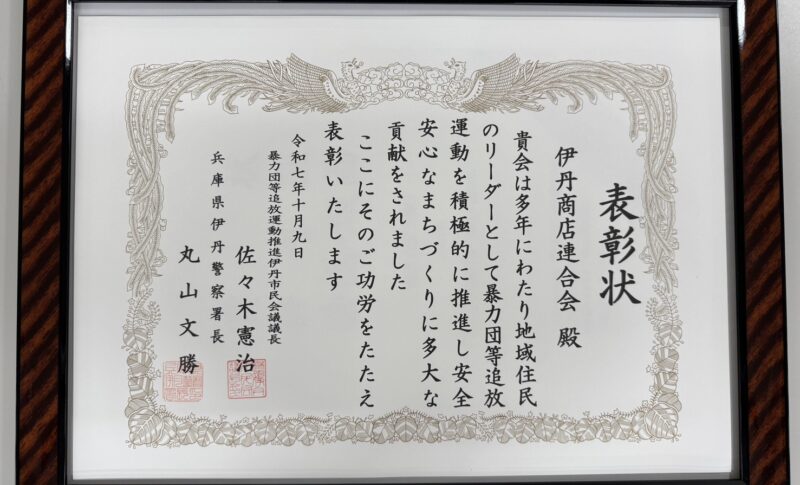 表彰状
伊丹商店連合会 殿
貴会は多年にわたり地域住民
のリーダーとして暴力団等追放
運動を積極的に推進し安全
安心なまちづくりに多大な
貢献をされました
ここにそのご功労をたたえ
表彰いたします
令和七年十月九日
暴力団等追放運動推進伊丹市民会議議長
佐々木憲治
兵庫県伊丹警察署長
丸山文勝